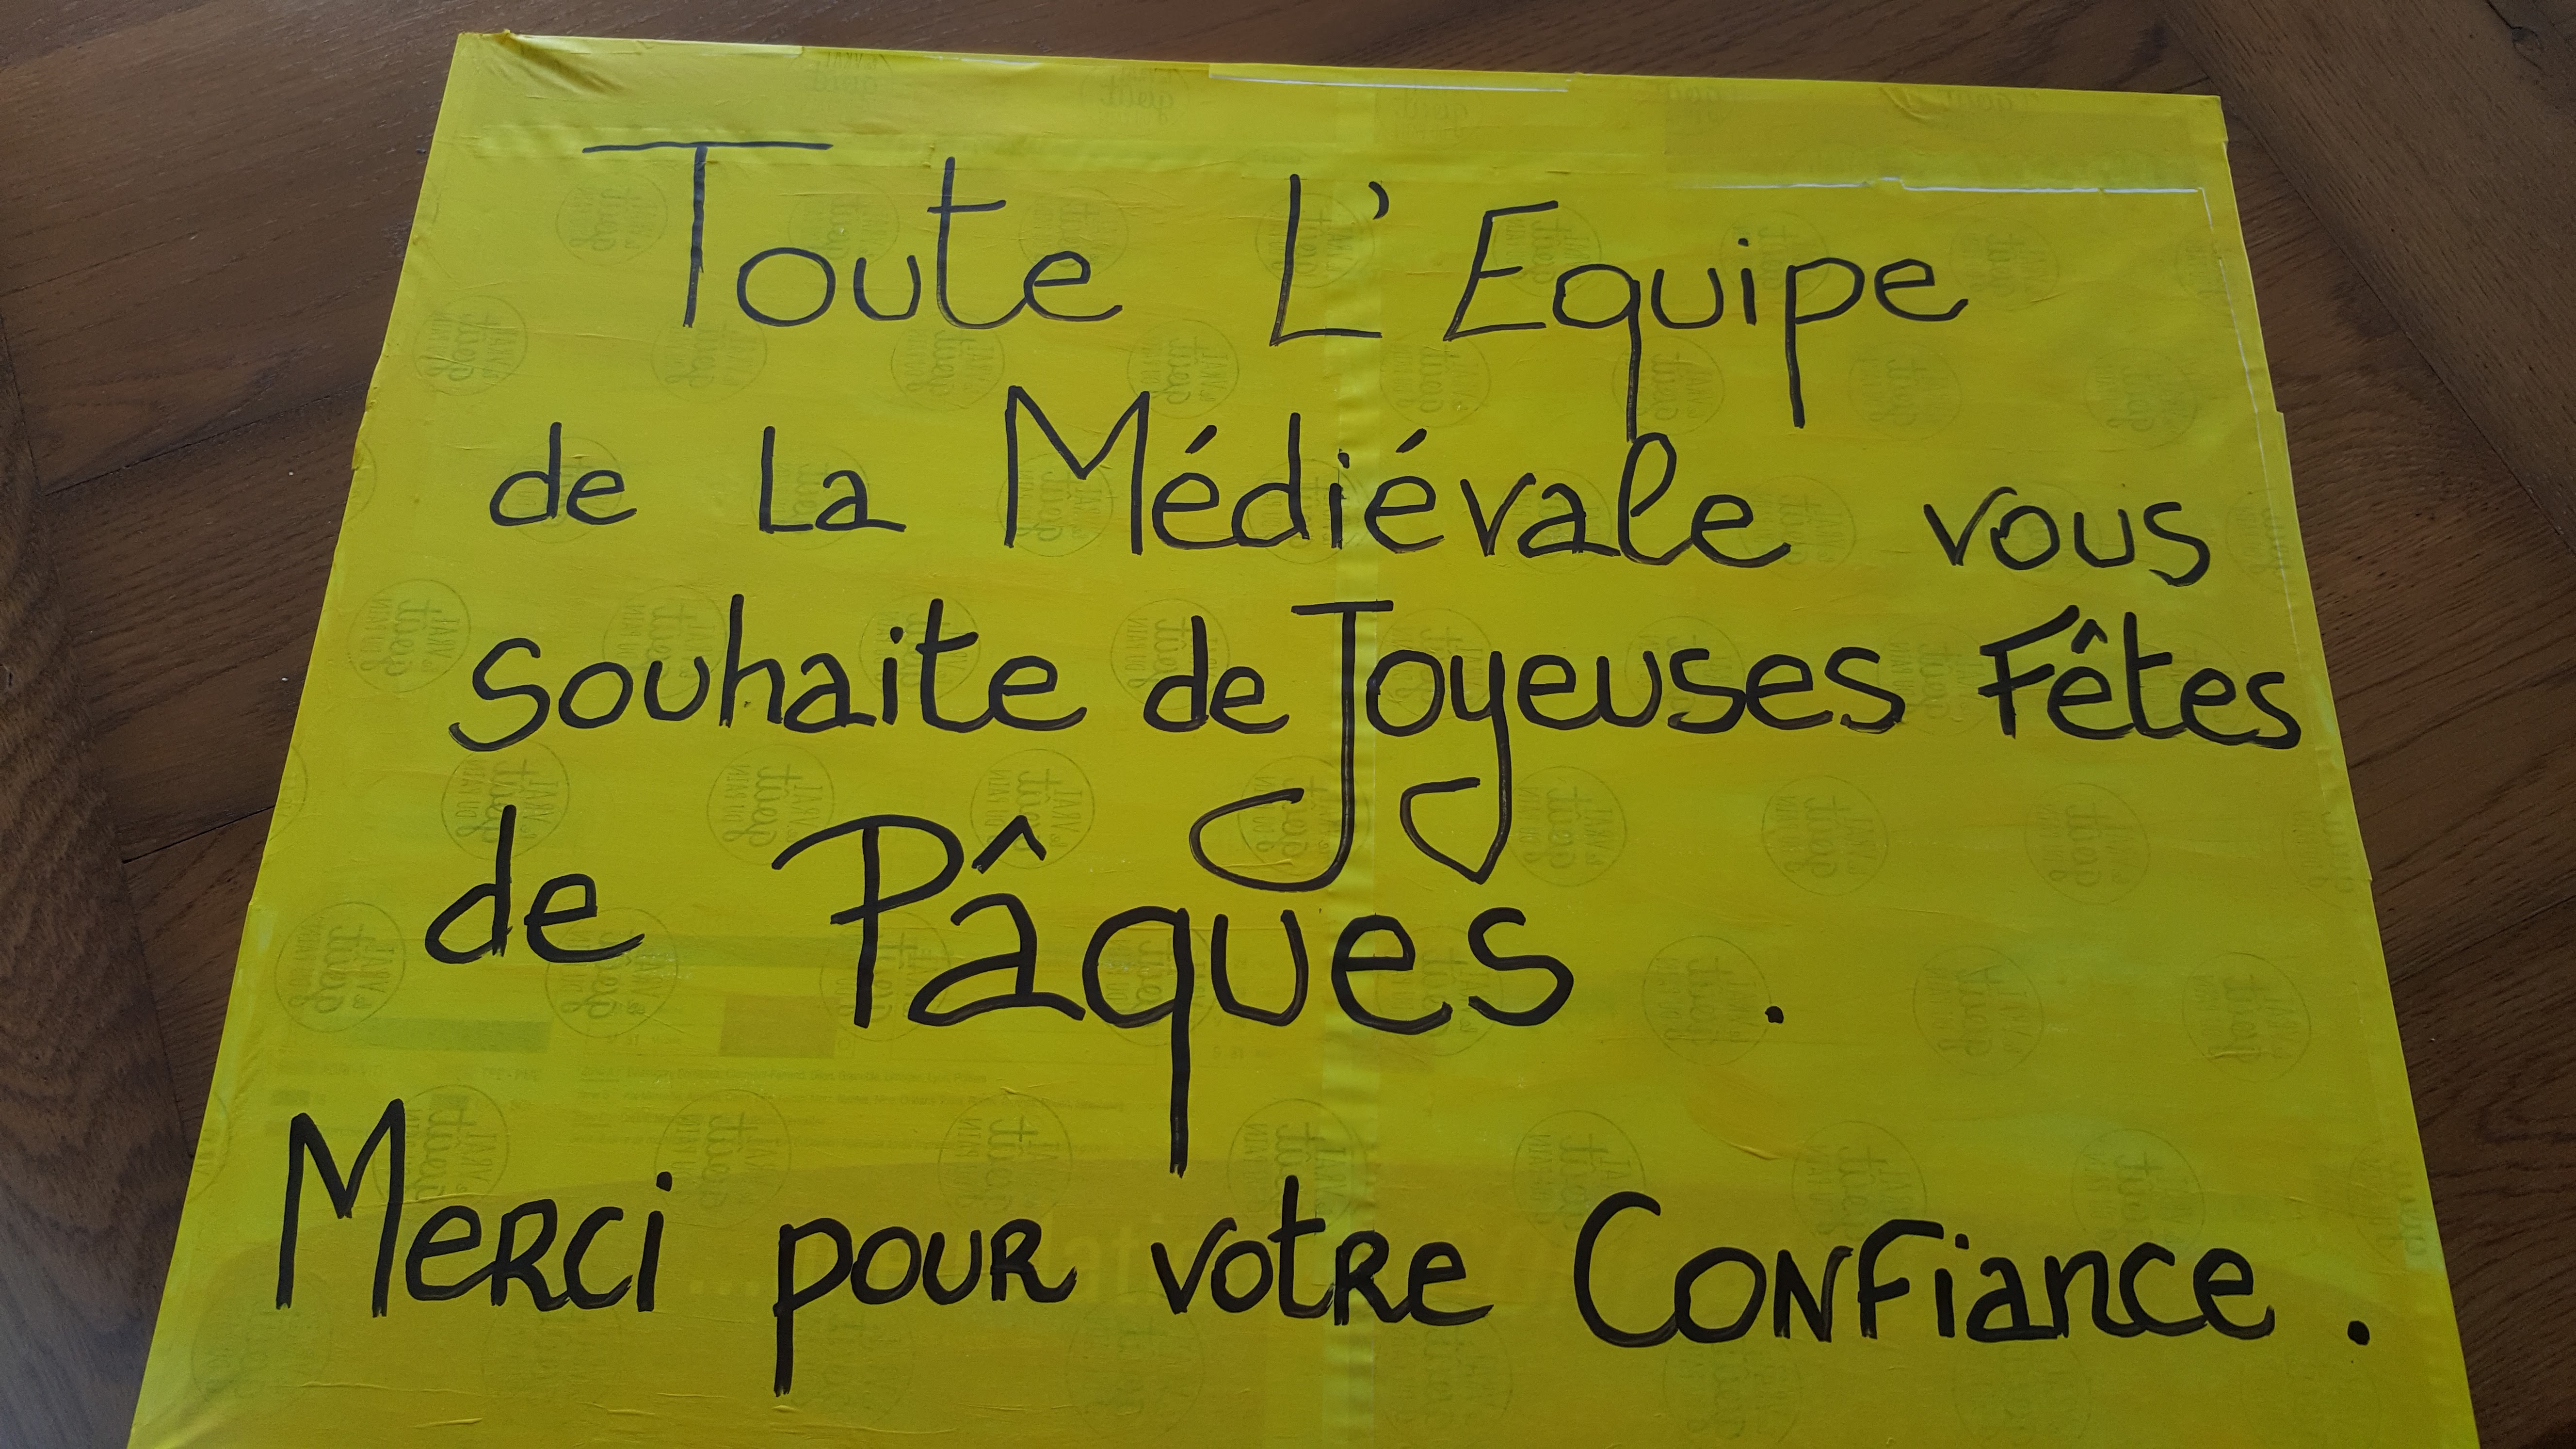 Toute L'Equipe
de La Médiévale vous
souhaite de Joyeuses Fêtes
de Pâques.
Merci pour votre Confiance.